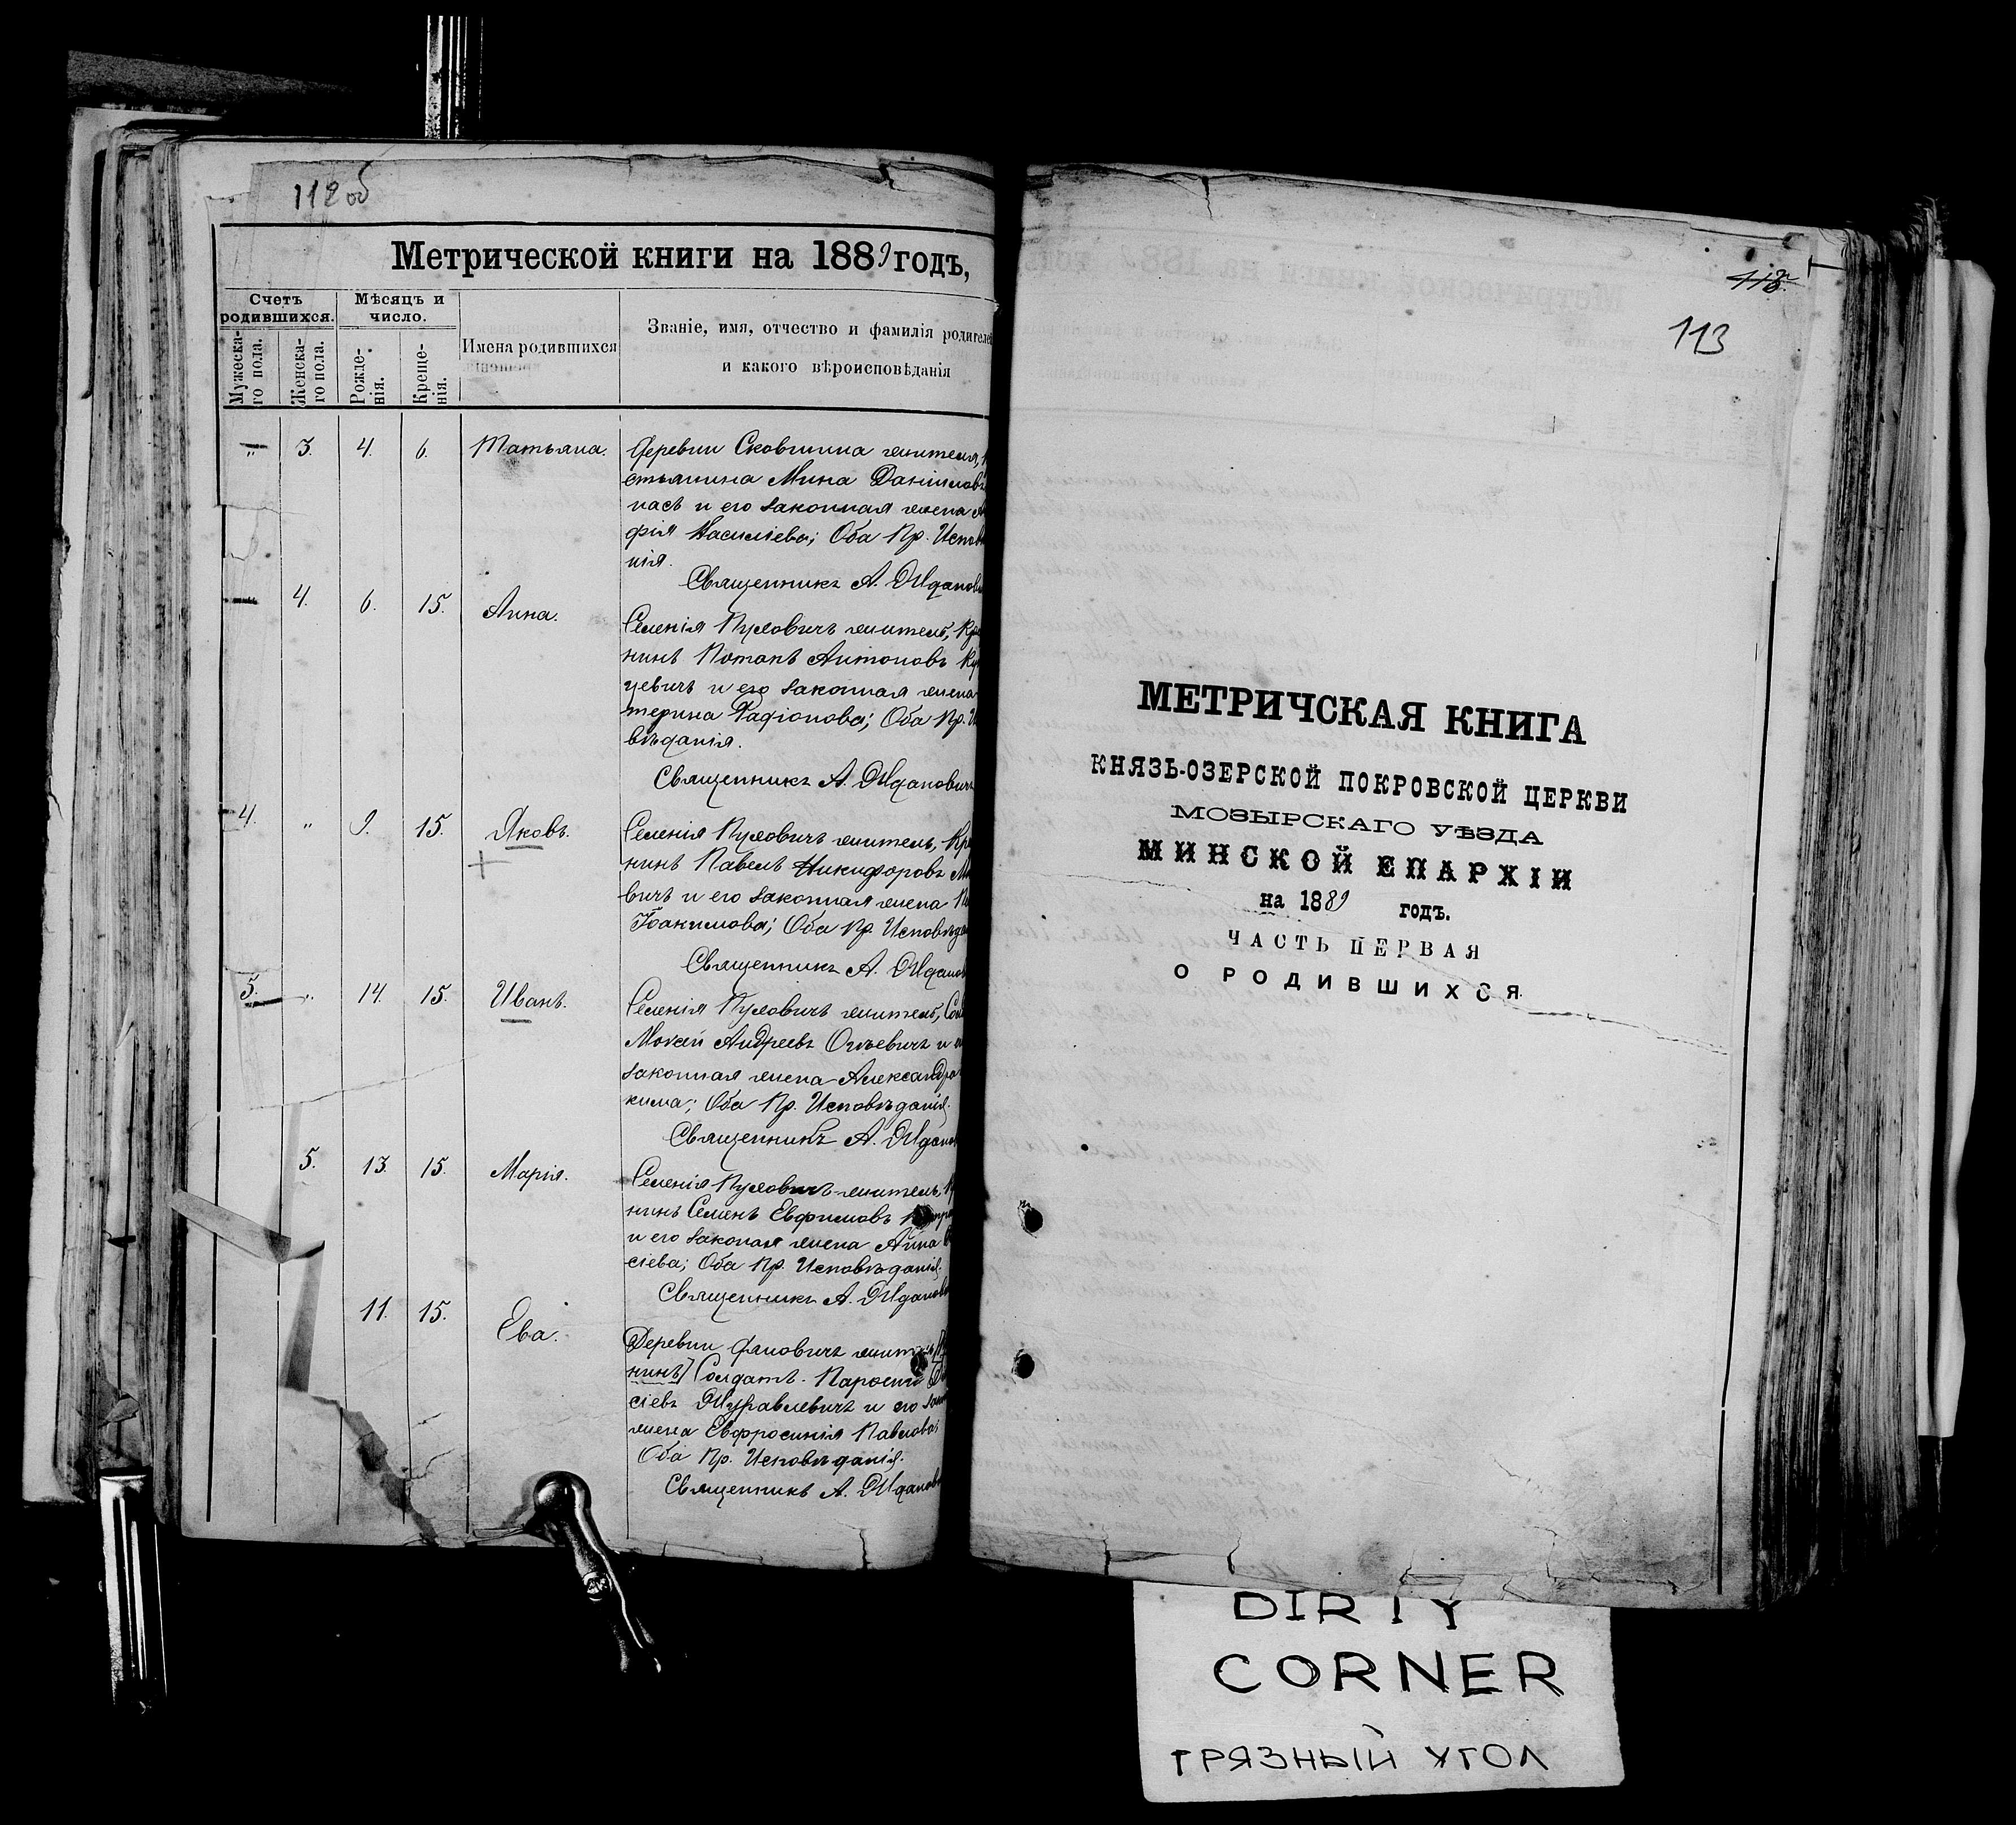 112 об
Метрической книги на 1889 годъ,
Счетъ родившихся.
Мѣсяцъ и число.
Имена родившихся
Званіе, имя, отчество и фамилія родителей
и какого вѣроисповѣданія
Мужеска-
го пола.
Женска-
го пола.
Рожде-
нія.
Креще-
нія.
" 3. 4. 6. Татьяна.
Деревни жителя,
стьянина Мина Даніиловъ
и его законная жена
фія Оба Пр. Испов
нія.
Священникъ А. Жданов
4. 6. 15. Анна.
Селенія Пуховичъ житель, Кре
нинъ Потапъ Антоновъ
цевичъ и его законная жена
терина Оба Пр. И
вѣданія.
Священникъ А. Ждановичъ
4. " 9. 15. Яковъ.
Селенія Пуховичъ житель, Кре
нинъ Павелъ Никифоровъ
вичъ и его законная жена
Іоакимова; Оба Пр. Исповѣда
Священникъ А. Жданов
5. " 14. 15. Иванъ.
Селенія Пуховичъ житель,
Андреевъ и
законная жена Александра
кима; Оба Пр. Исповѣданія.
Священникъ А. Ждано
5. 13. 15. Марія.
Селенія Пуховичъ житель,
нинъ Семенъ Евфимовъ
и его законая жена Анна
сіева; Оба Пр. Исповѣданія.
Священникъ А. Жданов
11. 15. Ева.
Деревни житель
нинъ] Солдатъ
сіевъ Журавлевичъ и его зако
жена Евфросинія Павлова;
Оба Пр. Исповѣданія.
Священникъ А. Жданов
113
МЕТРИЧСКАЯ КНИГА
КНЯЗЬ-ОЗЕРСКОЙ ПОКРОВСКОЙ ЦЕРКВИ
МОЗЫРСКАГО УѢЗДА
МИНСКОЙ ЕПАРХІИ
на 1889 годъ.
ЧАСТЬ ПЕРВАЯ
О РОДИВШИХСЯ
DIRTY
CORNER
ГРЯЗНЫЙ УГОЛ